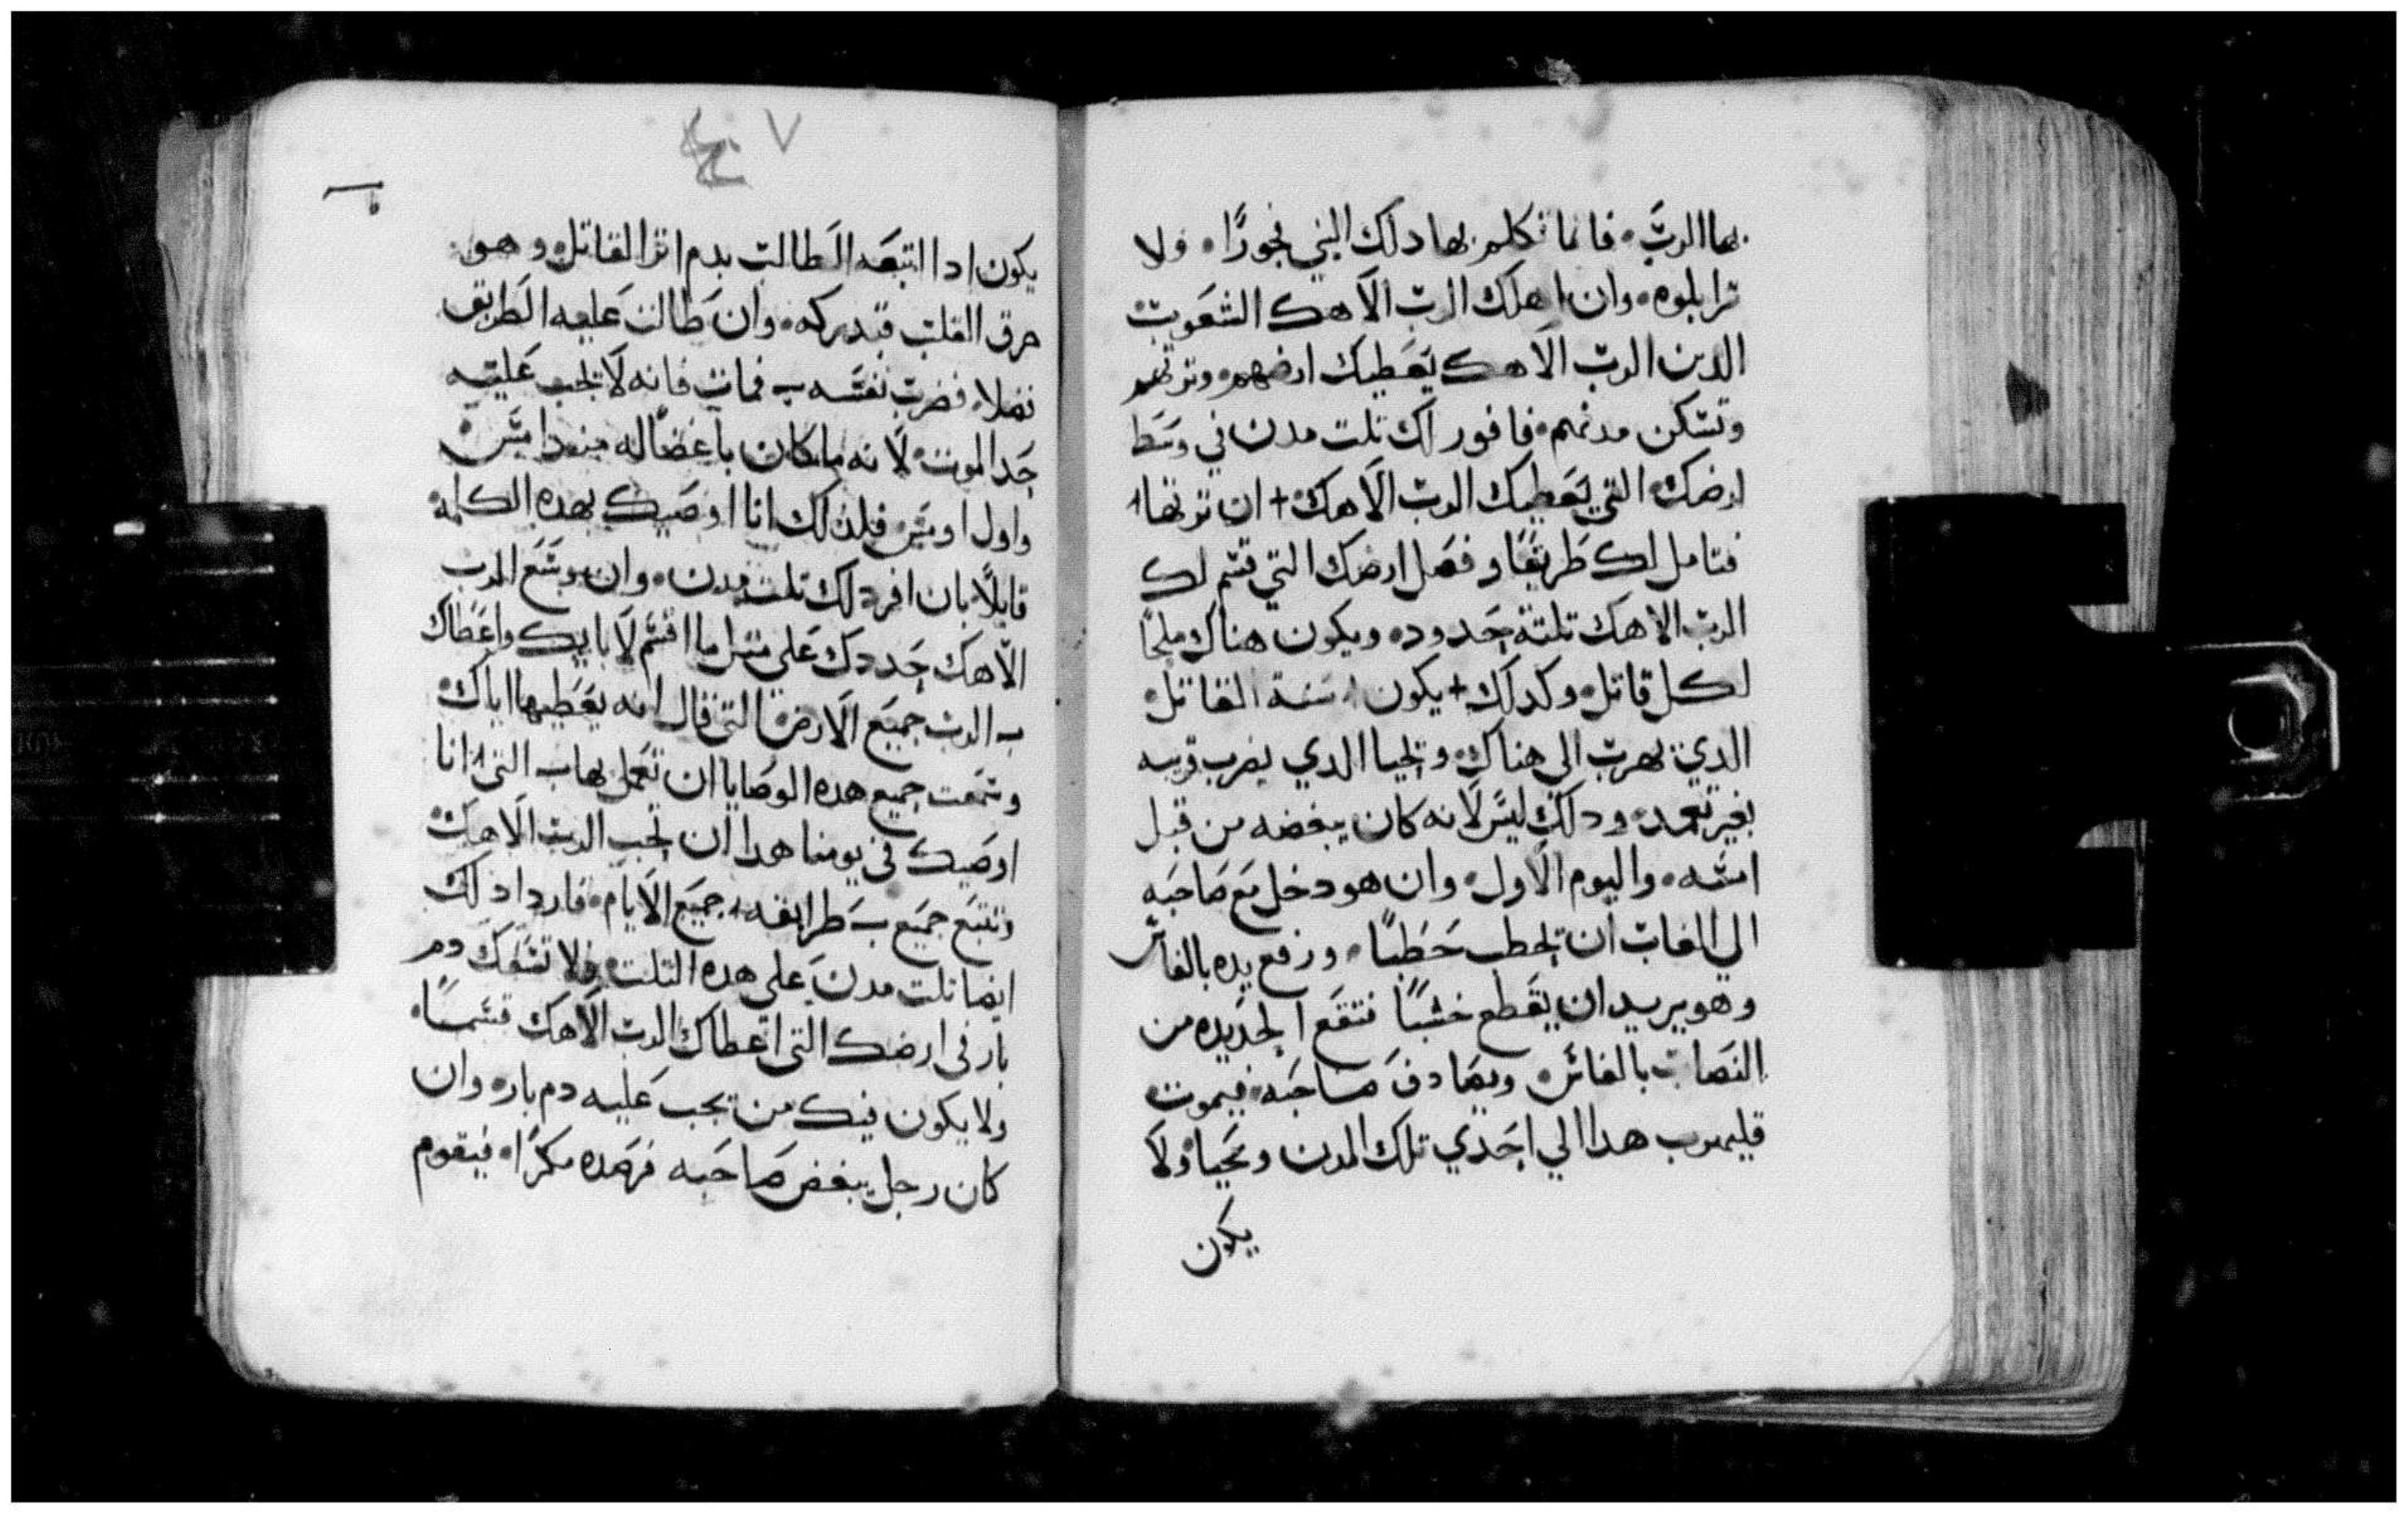 بها الرب فانما تكلم بها دلك النبي فجورًا ولا
ترابلوه وان اهلك الرب الاهك الشعوب
الدين الرب الاهك يعطيك ارضهم وترتهم
وتسكن مدنهم فافور لك تلت مدن في وسط
ارضك التي يعطيك الرب الاهك + ان ترتها
فتامل لك طريقًا وفصل ارضك التي قسم لك
الرب الاهك تلتة حدود ويكون هناك ملجًا
لكل قاتل وكدلك + يكون سنة القاتل
الدي يهرب الي هناك ويحيا الدي يضرب قريبه
بغير تعمد ودلك ليس لانه كان يبغضه من قبل
امسه واليوم الاول وان هو دخل مع صاحبه
الي الغاب ان يحطب حطبًا ورفع يده بالفاس
وهو يريد ان يقطع خشبًا فتقع الحديده من
النصاب بالفاس ويصادف صاحبه فيموت
فليهرب هدا الي احدي تلك المدن ويحيا ولا
يكون
٧
يكون ادا اتبعه الطالب بدم اترا لقاتل وهو
حرق القلب فيدركه وان طالت عليه الطريق
فضلا فضرب نفسه فمات فانه لا يجب عليه
حد الموت لانه ما كان باغضًا له مند امس
واول اومس فلدلك انا اوصيك بهده الكلمه
قايلًا بان افرد لك تلت مدن وان يوسع الرب
الاهك حددك علي متل ما اقسم لابايك واعطاك
الرب جميع الارض التي قال انه يعطيها اباك
وسمعت جميع هده الوصايا ان تعمل بها التي انا
اوصيك في يومنا هدا ان تحب الرب الاهك
وتتبع جميع طرايقه جميع الايام فازداد لك
ايضا تلت مدن علي هده التلت ولا تسفك دم
بار في ارضك التي اعطاك الرب الاهك قسمًا
ولا يكون فيك من يجب عليه دم بار وان
كان رجل يبغض صاحبه فرصده مكرًا فيقوم